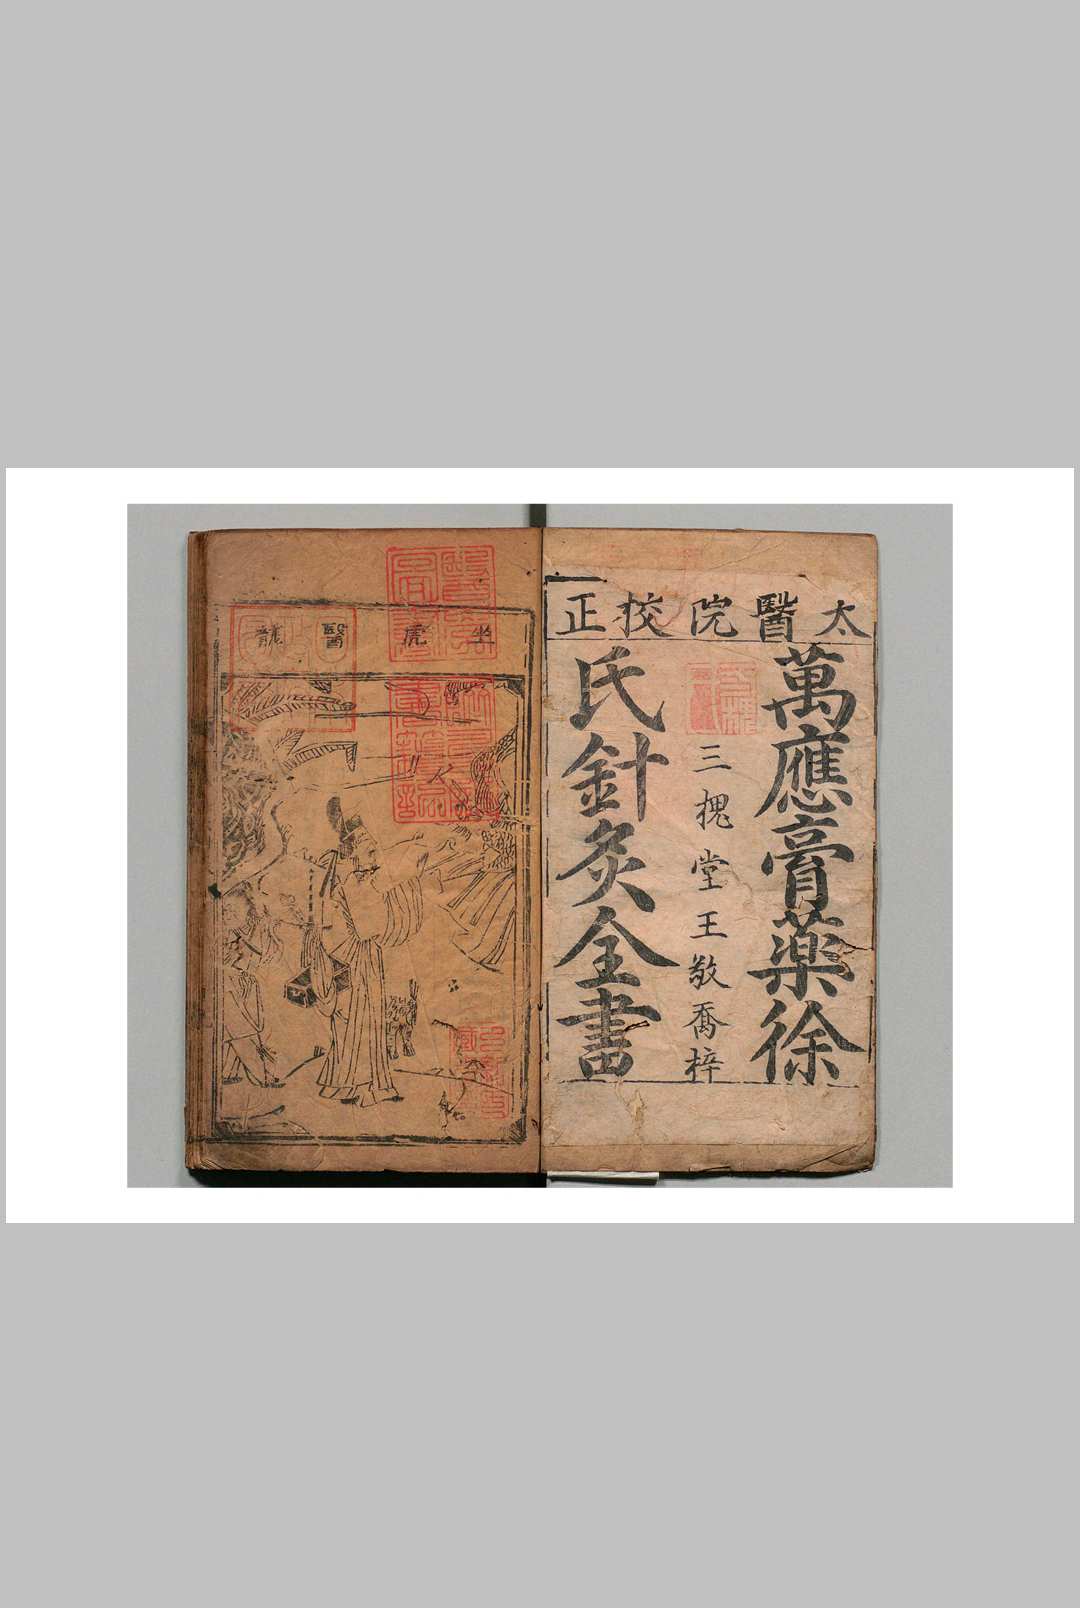 太醫院校正
萬應膏藥徐
三槐堂王敬喬梓
氏針灸全書
坐虎醫龍